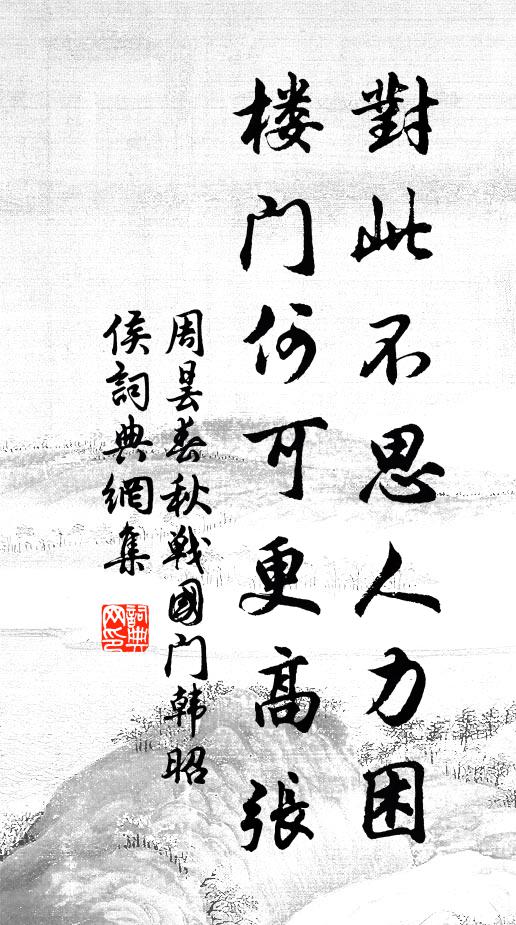 對此不思人力困
楼门何可更高張
周昙春秋戰國门韩昭
侯詞典網集
詞典網印